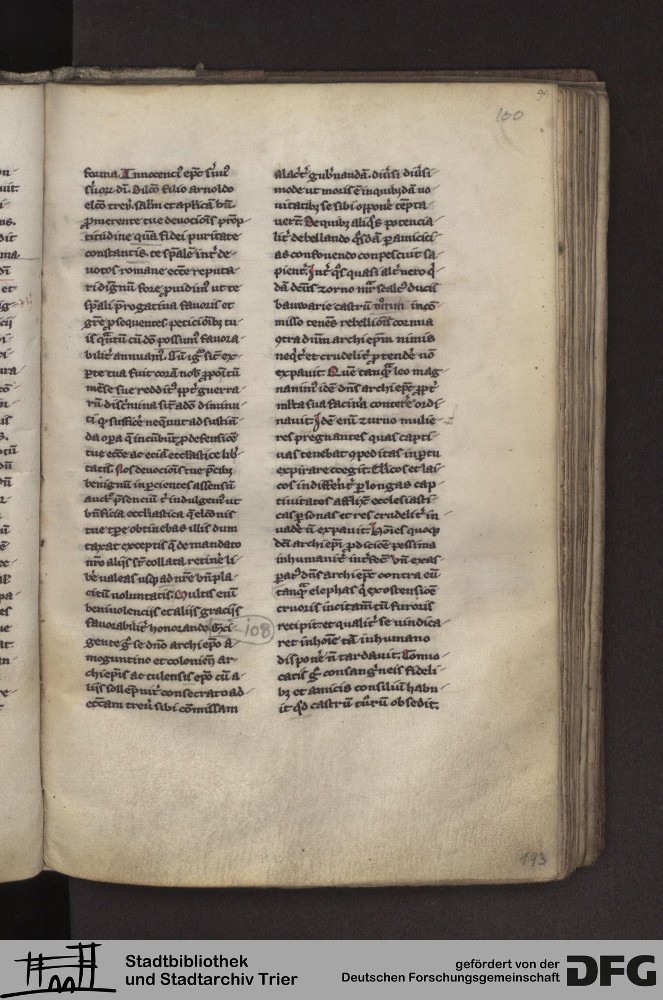 100
forma. Innocenti᷒ epc̄ s̄uu᷒
s̄uor dī. dilc̄o filio arnoldo
elc̄o treu᷒. salt̄m et aplica᷒ bn᷒
ꝓmerente tue deuocionis prōp
titudine qua fidei puritate
constantis. te sp̄ale int̄ de
uotos romane ecc̄e reputa
ri dignū fore ꝓuidim᷒ ut te
sp̄ali p̄rogatiua fauoris et
gr̄e ꝓsequentes peticionibꝫ tu
is q̄ntū cū dō possum᷒ fauora
bilit̄ annuam᷒.
mēse sue reddit᷒ ꝓpt̄ guerra
rū disc̄mina sūt adō diminu
ti ꝙ sufficē neq̄unt ad sustīā
da oꝑa q̄ incūbūt ꝓ defensiōe
tue ecc̄e ac eciā ecc̄lastice lib̄
tatis. Nos deuocionis tue p̄cibꝫ
benignū inꝑcientes assensū
auct̄ p̄senciū t̄ indulgem᷒ ut
bn̄ficia ecc̄lastica q̄ elc̄onis
tue tꝑe obtinebas illis dum
taxat exceptis q̄ de mandato
nr̄o alijs s̄t collata retinē li
bē ualeas usqꝫ ad nr̄e bn̄pla
citū uoluntatis. Multis enī
beniuolencijs et alijs gracijs
fauorabilit̄ honorando. Sci
108
gente g̊ se dn̄o archiep̄o a
moguntino et colonien̄ ar
chiep̄is ac tulensis ep̄o cū a
lijs sollēpnit̄ consecrato ad
ecc̄am treu᷒ sibi cōmissam
alacit̄ gub̄nandā. diu̓si diu̓si
mode ut moris ē in quibꝫdā no
uitatibꝫ se sibi opponē tēpta
uer̄t. De quibꝫ aliq̊s potencia
lit̄ debellando q̊sdā ꝑ amicici
as confouendo conpescuit sa
pient̄. Int̄ q̊s quasi alt̄ nero q̄
dā dc̄us zorno
bauwarie castrū
misso tenēs rebellionis cornua
ꝯtra dn̄m archiep̄m nimis
neq̄t̄ et crudelit̄ ꝓtendē nō
expauit. Quē tanq̄ leo mag
nanim᷒ idē dn̄s archiep̄c ꝓpt̄
ml̄ta sua facinā conterē ordi
nauit. Idē enī zurno mulie
res pregnantes quas capti
uas tenebat ꝯpeditas in ꝑtu
expirare coegit. Cl̄icos et lai
cos indiffēnt̄ ꝑ longas cap
tiuitatos afflixit ecclesiasti
cas ꝑsonas et res crudelit̄ in
uadē n̄ expauit. Hoīes quoqꝫ
dc̄i archiep̄i ꝓdicioē pessima
inhumanit̄ int̄fec̄. Vn̄ exas
ꝑat᷒ dn̄s archiep̄c contra eū
tanq̄ elephas q̄ ex ostensiōe
cruoris incitam̄tū furoris
recipit et qualit̄ se uindica
ret in hoīe tā inhumano
disponē n̄ tardauit. Conuo
catis g̊ consang̓neis fideli
bꝫ et amicis consiliū habu
it qd̓ castrū turū obsedit.
193
Stadtbibliothek
und Stadtarchiv Trier
gefördert von der
Deutschen Forschungsgemeinschaft
DFG